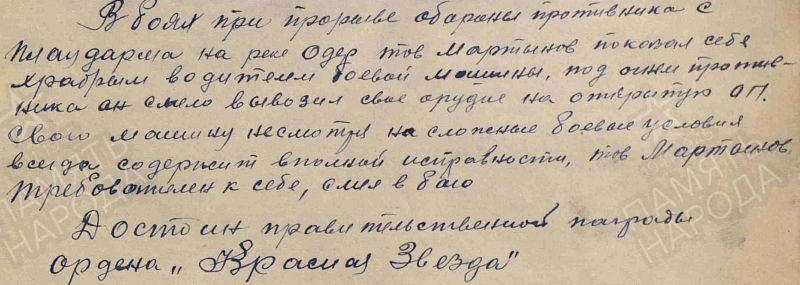 В боях при прорыве обароны противника с
плацдарма на реке Одер тов Мартынов показал себя
храбрым водителем боевой машины, под огнем против-
ника он смело вывозил свое орудие на открытую ОП.
Свою машину несмотря на сложные боевые условия
всегда содержит в полной исправности, тов Мартынов
требователен к себе, смел в бою
Достоин правительственной награды
ордена „Красная Звезда"
ПАМЯТЬ
НАРОДА
ПАМЯТЬ
НАРОДА